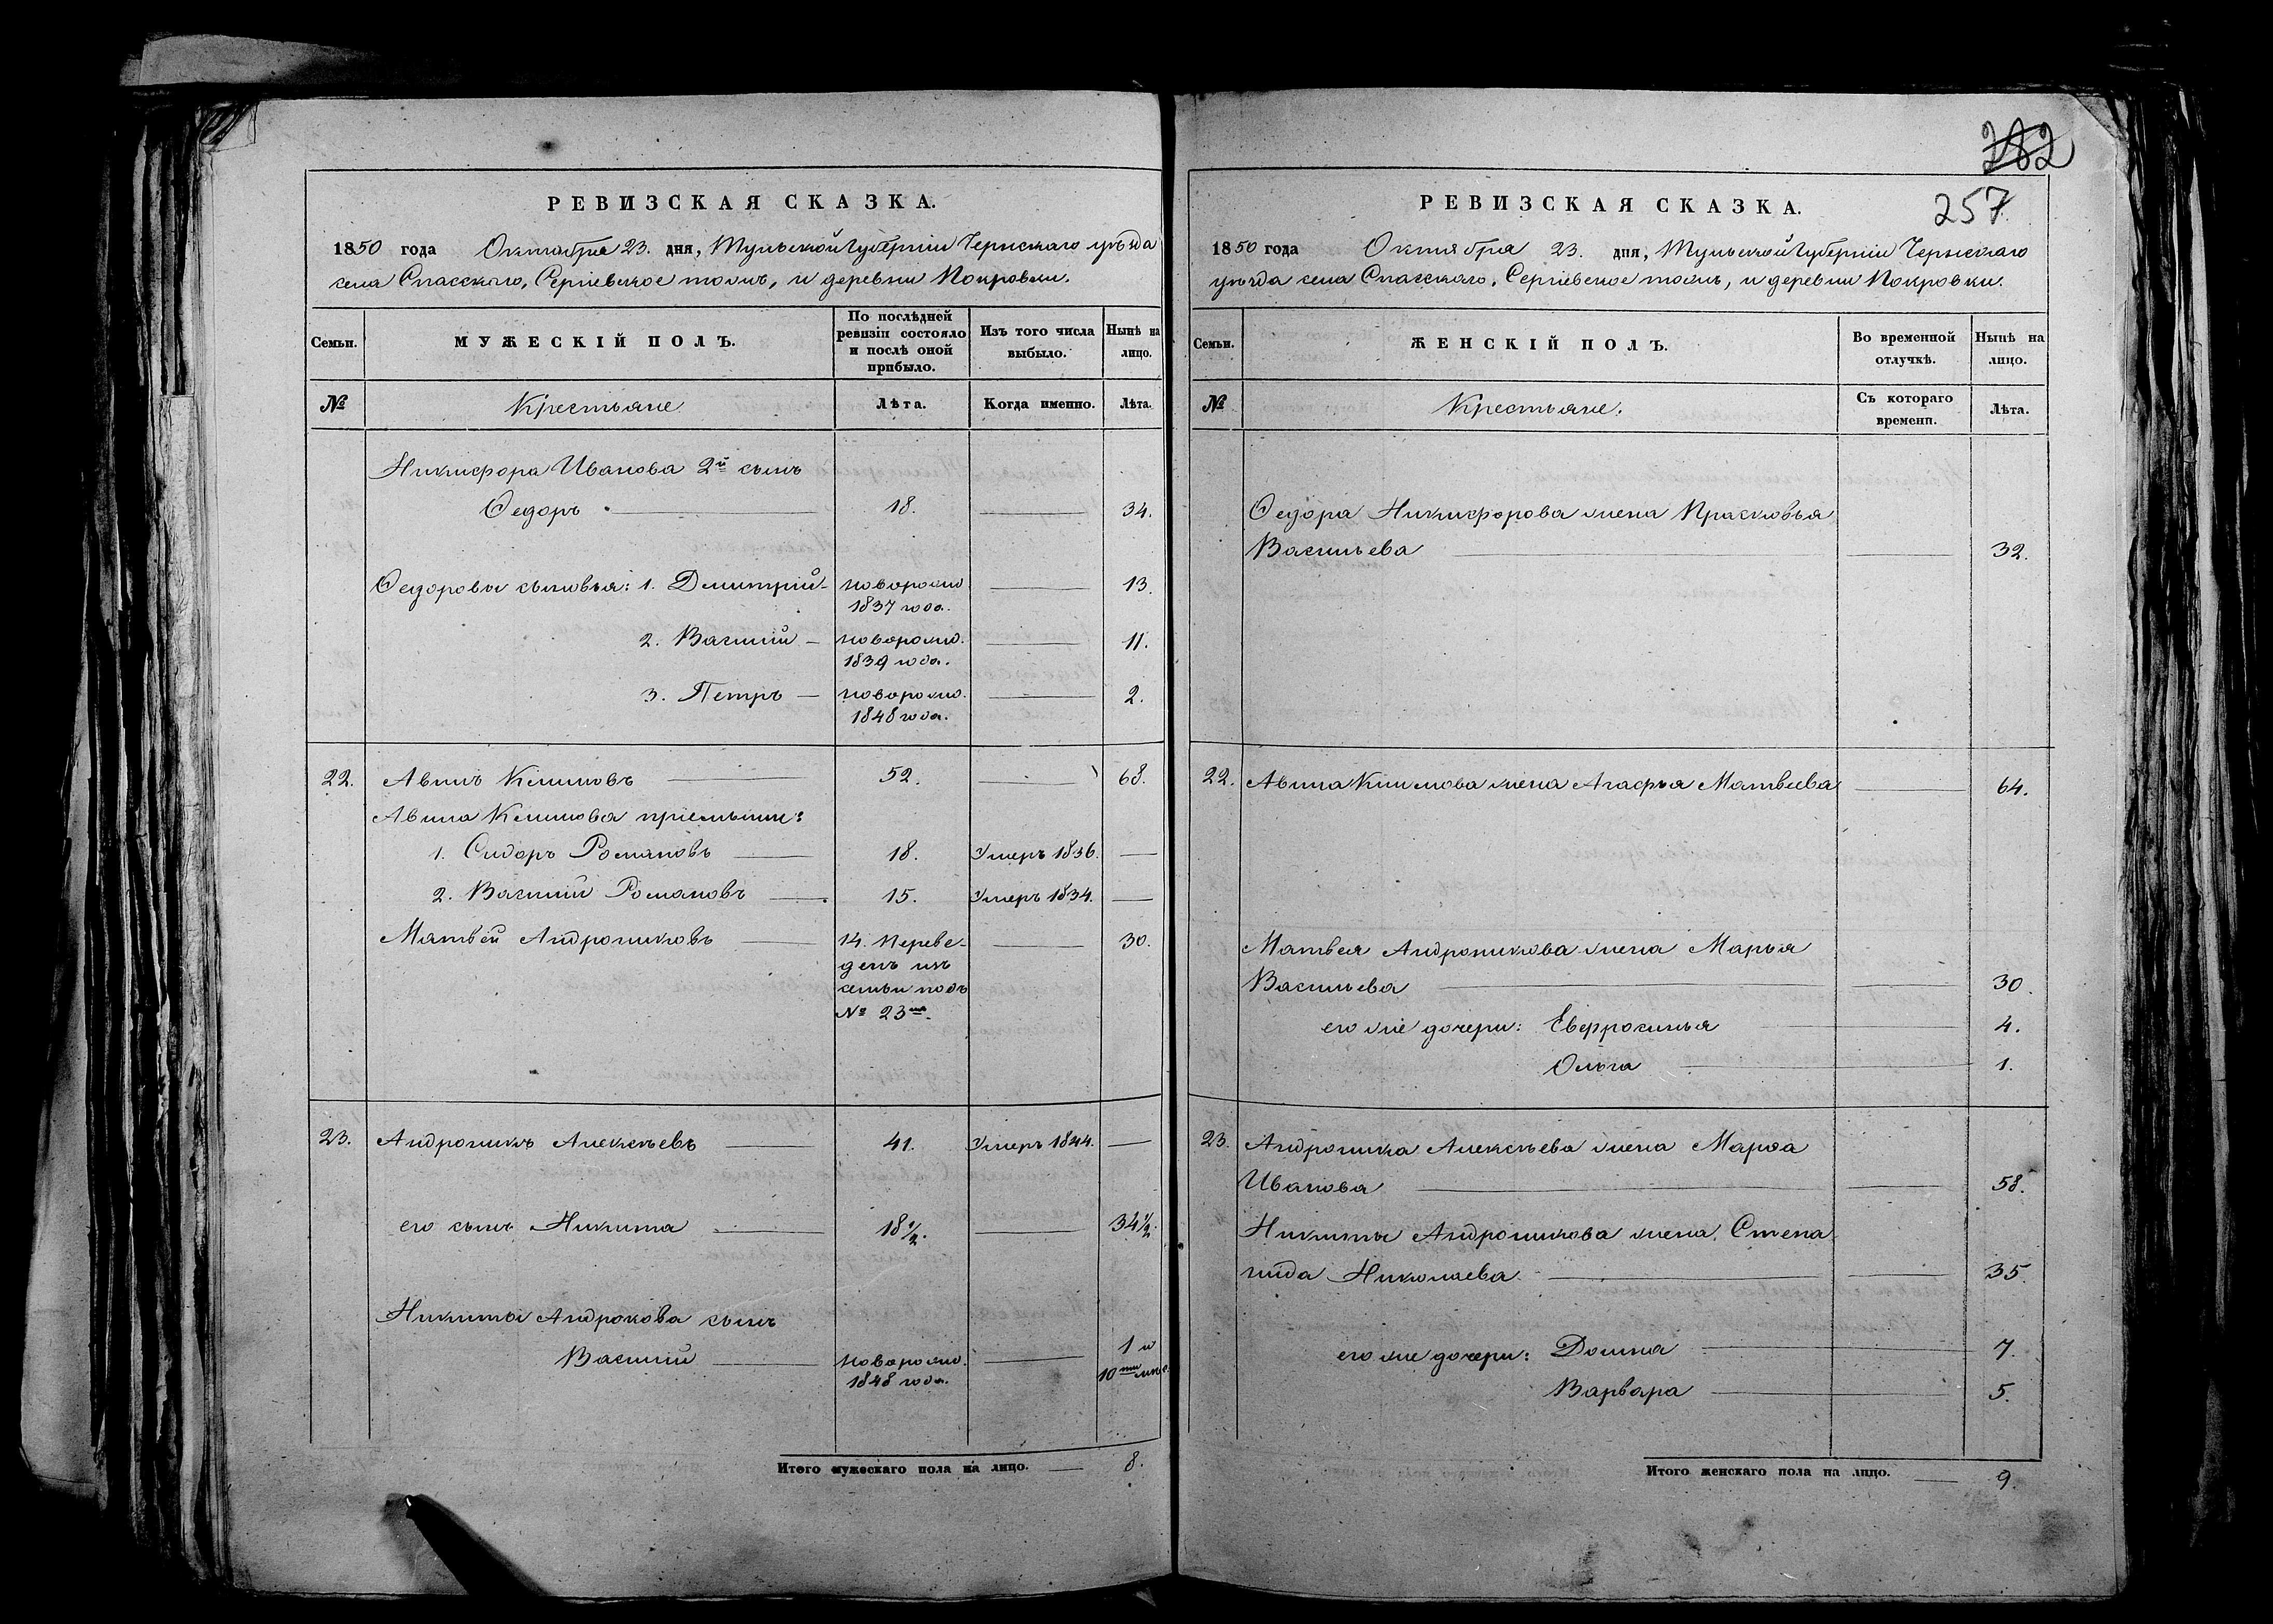 РЕВИЗСКАЯ СКАЗКА.
1850 года Октября 23. дня, Тульской Губерніи Чернскаго уѣзда
села Спасскаго, Сергіевское тожъ, и деревни Покровки.
Семьи.
МУЖЕСКІЙ ПОЛЪ.
По послѣдней
ревизіи состояло
и послѣ оной
прибыло.
Изъ того числа
выбыло.
Нынѣ на
лицо.
№
Крестьяне
Лѣта.
Когда именно.
Лѣта.
Никифора Иванова 2й сынъ
Ѳедоръ 18. 34.
Ѳедоровы сыновья: 1. Дмитрій новорожд. 13.
1837 года.
2. Василій новорожд. 11.
1839 года.
3. Петръ новорожд. 2.
1848 года.
22. Авилъ Климовъ 52. 68.
Авила Климова пріемыши:
1. Сидоръ Романовъ 18. Умеръ 1836.
2. Василій Романовъ 15. Умеръ 1834.
Матвей Андрониковъ 14. Переве- 30.
денъ изъ
семьи подъ
№ 23мъ.
23. Андроникъ Алексѣевъ 41. Умеръ 1844.
его сынъ Никита 18½. 34½.
Никиты Андронова сынъ
Василій новорожд. 1 и
1848 года. 10ти мѣс.
Итого мужескаго пола на лицо. 8.
282
257
РЕВИЗСКАЯ СКАЗКА.
1850 года Октября 23. дня, Тульской Губерніи Чернскаго
уѣзда села Спасскаго, Сергіевское тожъ, и деревни Покровки.
Семьи.
ЖЕНСКІЙ ПОЛЪ.
Во временной
отлучкѣ.
Нынѣ на
лицо.
№
Крестьяне.
Съ котораго
времени.
Лѣта.
Ѳедора Никифорова жена Прасковья
Васильева 32.
22. Авила Климова жена Агафья Матвеева 64.
Матвея Андроникова жена Марья
Васильева 30.
его же дочери: Евфросинья 4.
Ольга 1.
23. Андроника Алексѣева жена Марѳа
Иванова 58.
Никиты Андроникова жена Степа
нида Николаева 35.
его же дочери: Домна 7.
Варвара 5.
Итого женскаго пола на лицо. 9.